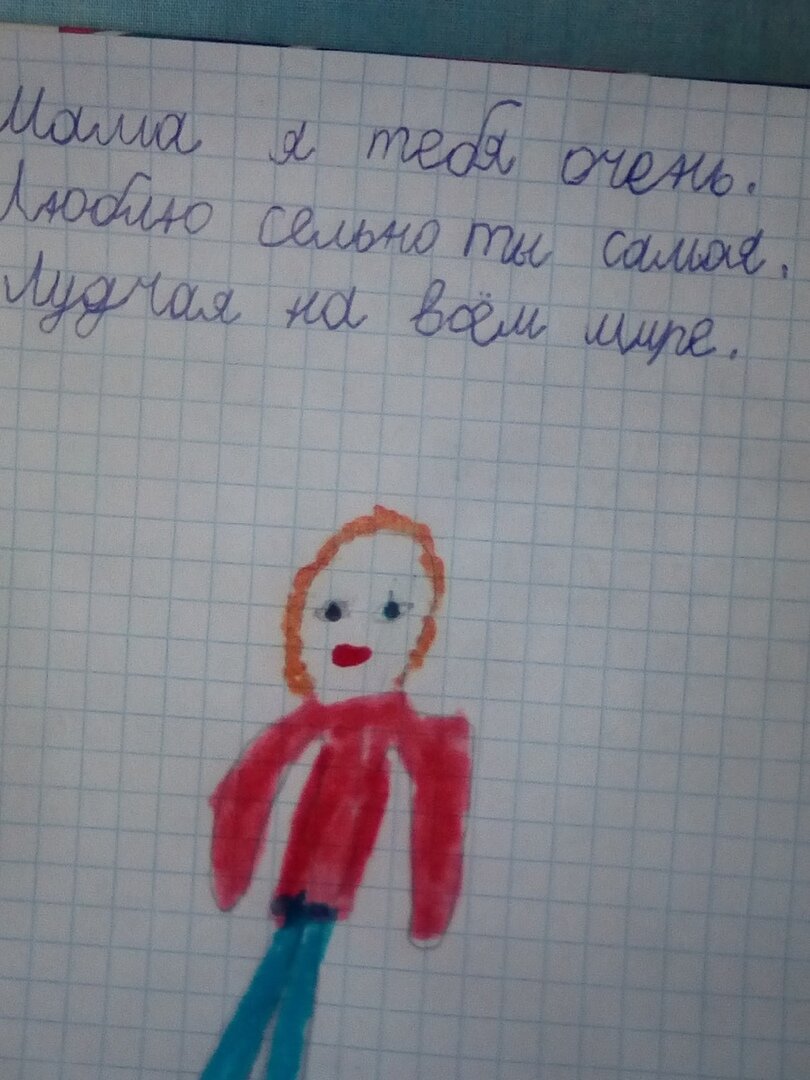 Мама я тебя очень.
Люблю сельно ты самая.
Лудчая на всём мире.